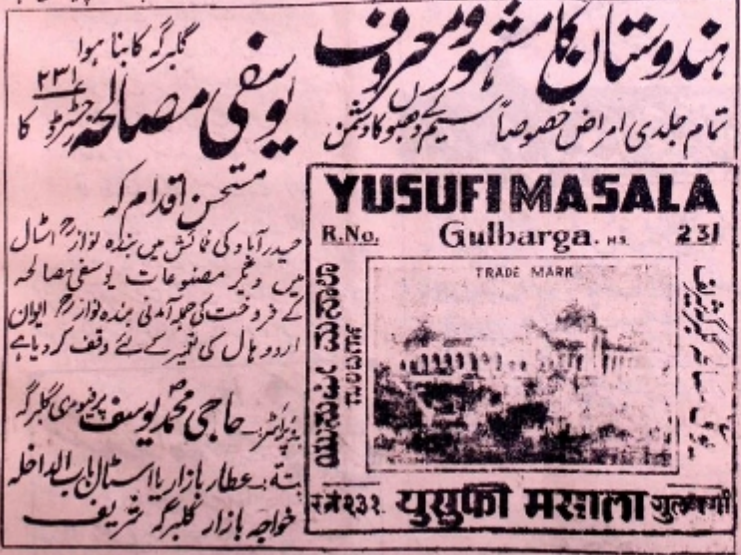 ہندوستان کا مشہور و معروف
تمام جلدی امراض خصوصاً سیم کے دھبوکا دشمن
گلبرگہ کا بنا ہوا
یوسفی مصالحہ رجسٹرڈ ۲۳۱ کا
مستحسن اقدام کہ
حیدرآباد کی نمائش میں بندہ نوازؒ اسٹال
میں و دیگر مصنوعات یوسفی مصالحہ
کے فروخت کی جملہ آمدنی بندہ نوازؒ ایوان
اردو ہال کی تعمیر کے لئے وقف کر دیا ہے
پروپرائٹر۔ حاجی محمد یوسف پرفیومری گلبرگہ
پتہ:۔ عطار بازار یا اسٹال باب الداخلہ
خواجہ بازار گلبرگہ شریف
YUSUFI MASALA
R.No. Gulbarga. H.S. 231
TRADE MARK
ಯುಸುಫಿ ಮಸಾಲಾ
ಗುಲಬರ್ಗಾ
र.नं २३१ युसुफी मसाला गुलबर्गा